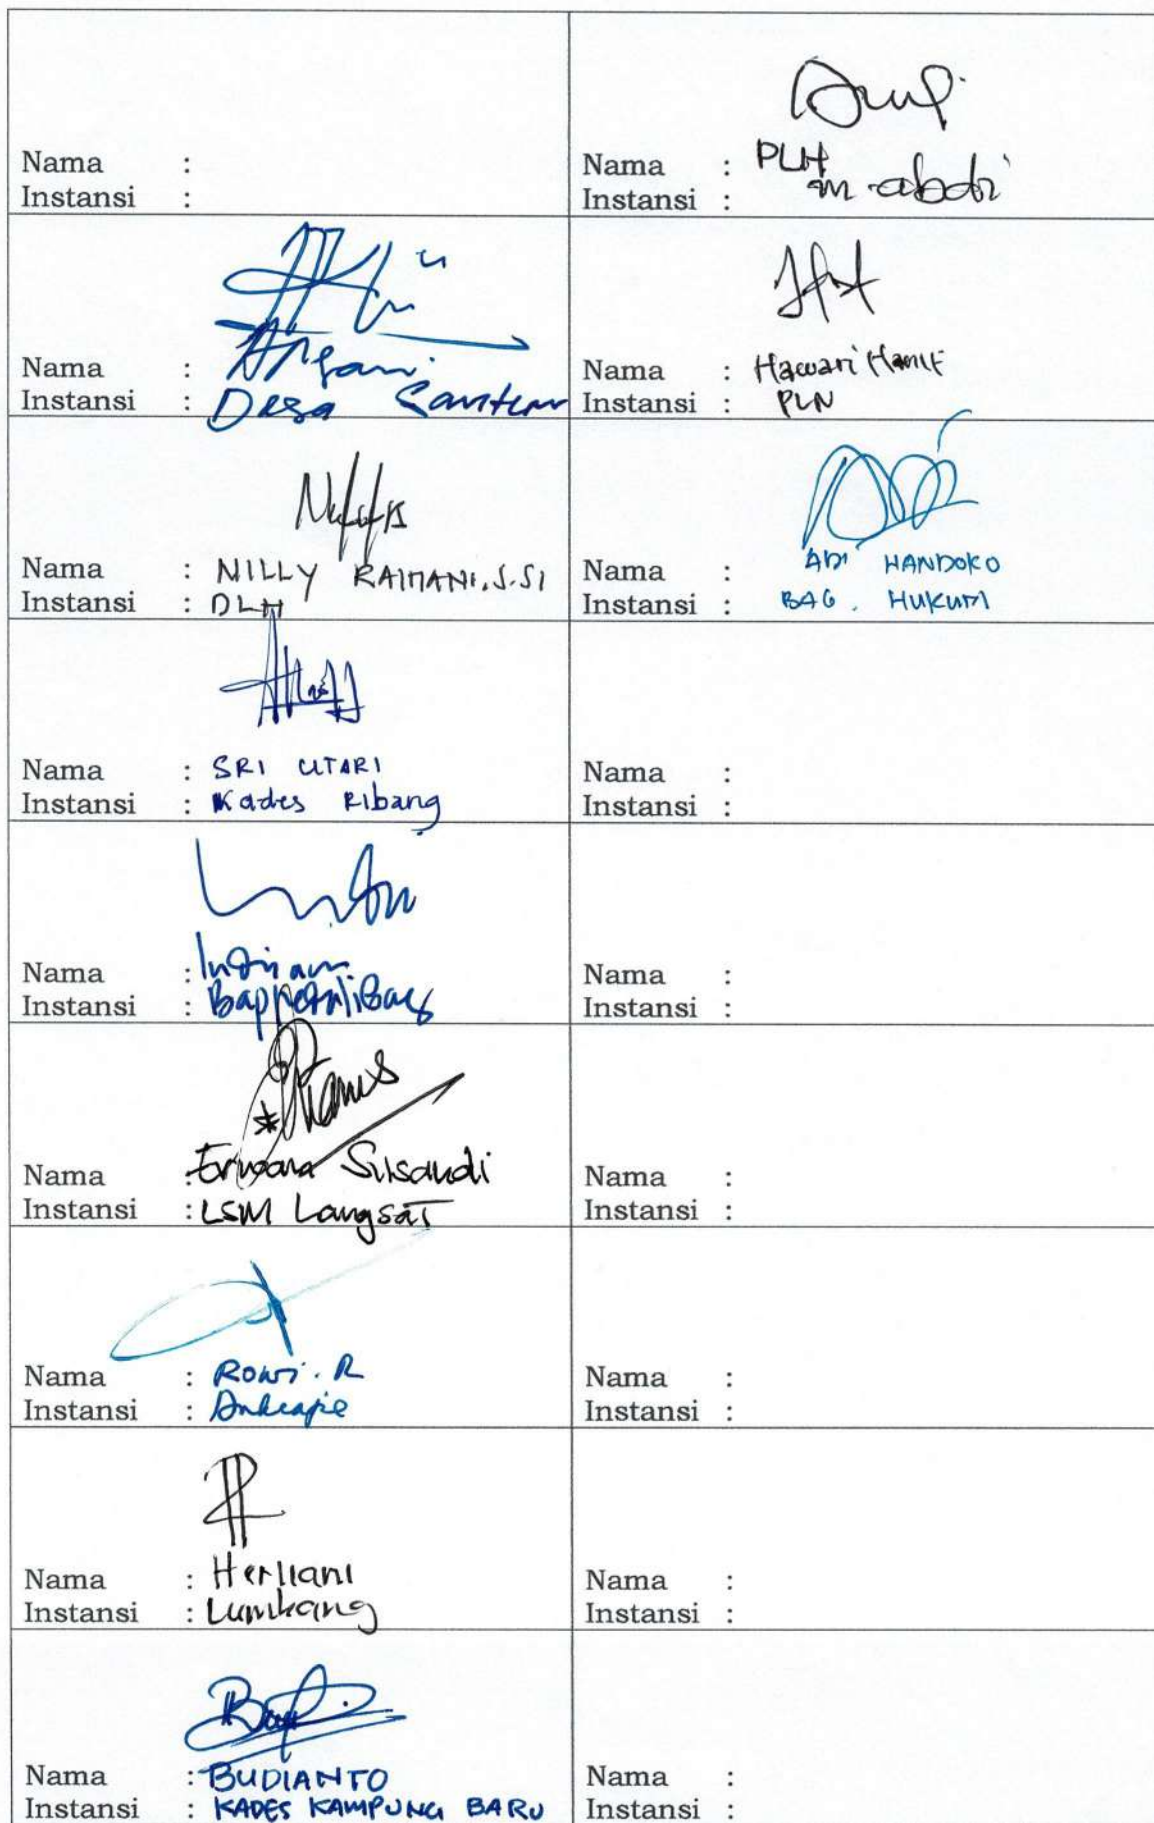 Nama :
Instansi :
Nama : PLH
Instansi : m. abdi
Nama :
Instansi : Desa
Nama : Hawari Hanif
Instansi : PLN
Nama : MILLY RAIMANI, S.SI
Instansi : DLH
Nama : ADI HANDOKO
Instansi : BAG. HUKUM
Nama : SRI UTARI
Instansi : Kades Ribang
Nama :
Instansi :
Nama :
Instansi :
Nama :
Instansi :
Nama : Susandi
Instansi : LSM Langsat
Nama :
Instansi :
Nama : R
Instansi :
Nama :
Instansi :
Nama : Herliani
Instansi : Lumbang
Nama :
Instansi :
Nama : BUDIANTO
Instansi : KADES KAMPUNG BARU
Nama :
Instansi :